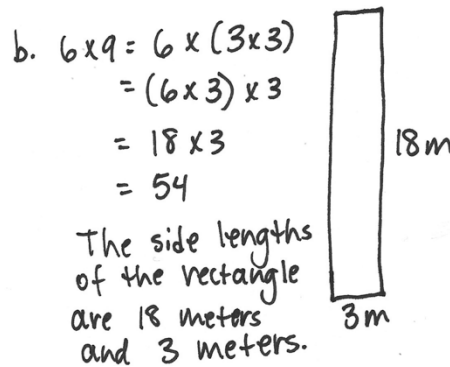 b. 6x9 = 6 x (3x3)
= (6x3) x 3
= 18 x 3
= 54
The side lengths
of the rectangle
are 18 meters
and 3 meters.
18m
3m